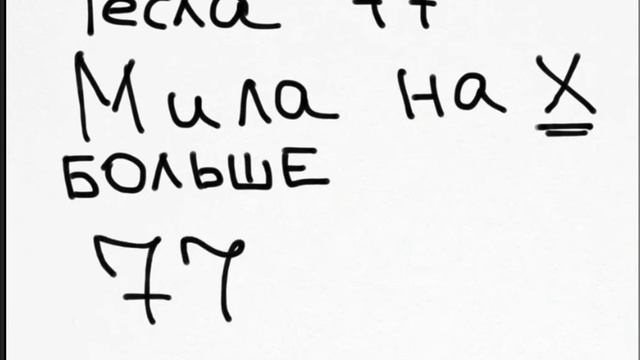 Тесла 77
Мила на X
БОЛЬШЕ
77